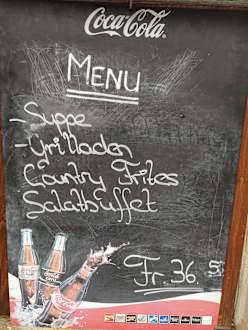 Coca-Cola
MENU
- Suppe
- Grilladen
Country Frites
Salatbuffet
Fr. 36.